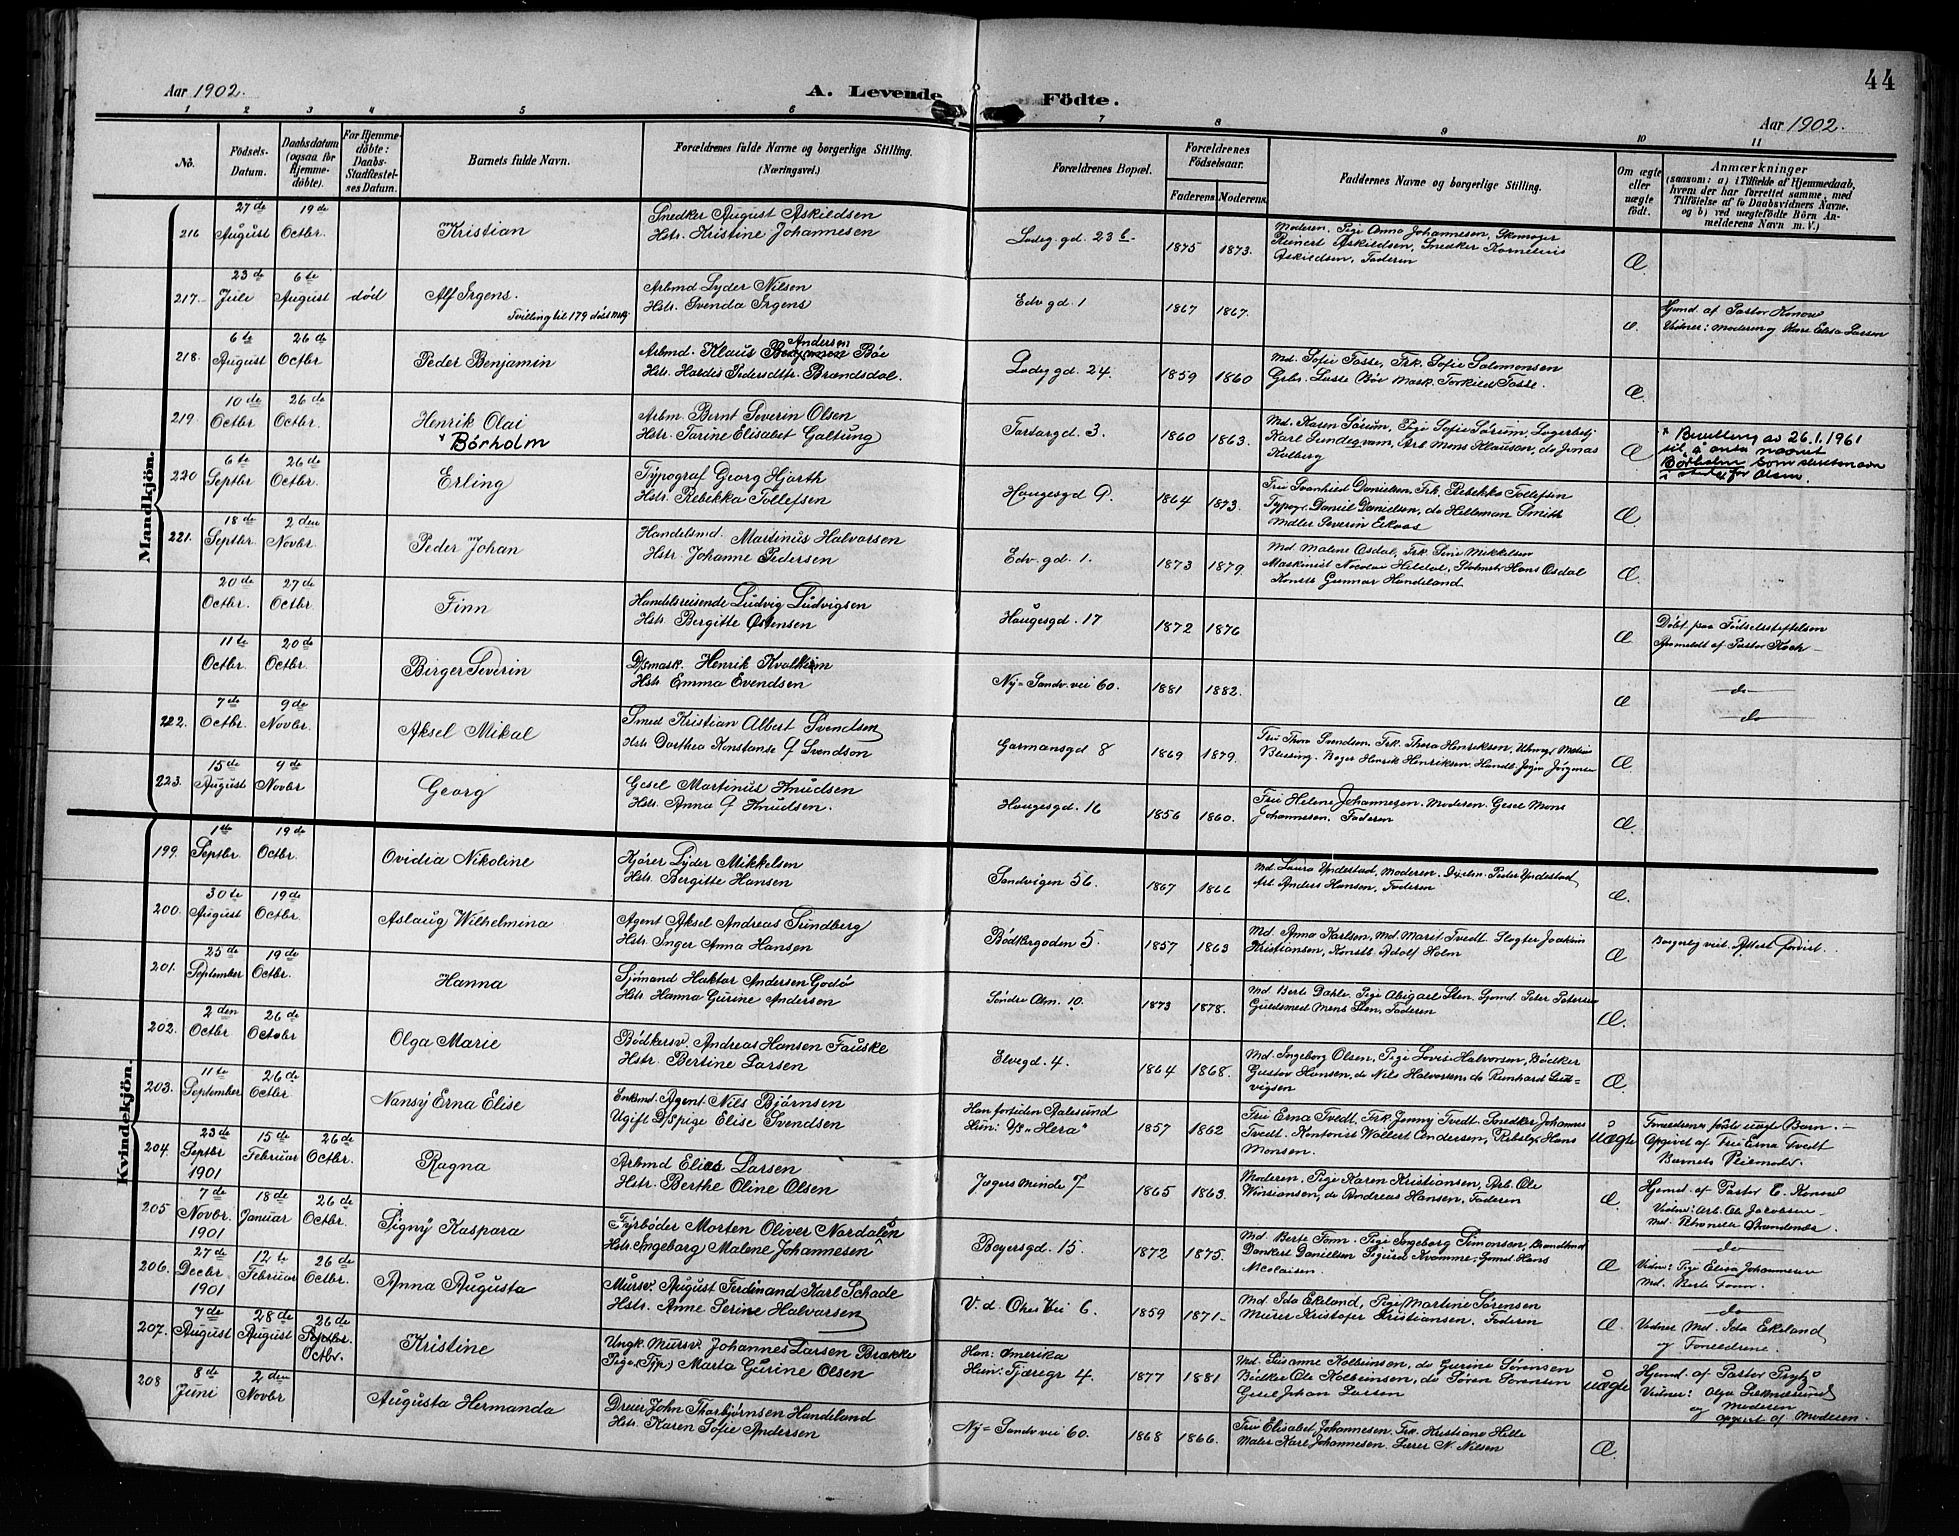 44
Aar 1902.
A. Levende Födte.
Aar 1902.
1 2 3 4 5 6 7 8 9 10 11
No.
Födsels-Datum.
Daabsdatum (ogsaa for Hjemmedöbte).
For Hjemmedöbte: Daabs-Stadfæstelses Datum.
Barnets fulde Navn.
Forældrenes fulde Navne og borgerlige Stilling.
(Næringsvei.)
Forældrenes Bopæl.
Forældrenes Födselsaar.
Faderens. Moderens.
Faddernes Navne og borgerlige Stilling.
Om ægte eller uægte födt.
Anmærkninger
(saasom: a) i Tilfælde af Hjemmedaab, hvem der har forrettet samme, med Tilföielse af to Daabsvidners Navne. og b) ved uægtefödte Börn Anmelderens Navn m. V.)
Mandkjön.
216 27de August 19de Octbr. Kristian
Snedker August Askildsen
Hstr. Kristine Johannesen
Lodeg gd. 23 b 1875 1873.
Moderen, Pige Anna Johannesen, Skomager
Reinert Askildsen, Snedker Kornelius
Askildsen, Faderen
Æ
217 23de Juli 6te August død Alf Irgens.
Tvilling til 179
Arbmd Lyder Nilsen
Hstr. Svenda Irgens
Edv. gd. 1 1867 1867.
Æ
Hjmd. af Pastor Konow
Vidner: Moderen og
218. 6te August 26de Octbr Peder Benjamin
Andersen
Arbmd. Klaus Benjamin Bøe
Hstr. Hardis Pedersdtr. Brandsdal.
Lodeg gd. 24. 1859 1860
Md. Sofie Taste, Frk. Sofie Salomonsen
Æ
219. 10de Octbr 26de Octbr. Henrik Olai
Børholm
Arbm. Bernt Severin Olsen
Hstr. Tarine Elisabet Galtung
Tartargd. 3. 1860 1863.
Md. Karen Sørum, Pige Sofie Sørum,
Arb Mons Klausen, do Jonas
Kolberg
Æ
Bevilling av 26.1.1961
til å anta navnet
Børholm som slektsnavn
istedf. for Olsen.
220 6te Septbr 26de Octbr. Erling
Typograf Georg Hjorth
Hstr. Rebekka Tollefsen
Haugesgd 9. 1864 1873.
Fru Svanhild Danielsen, Frk. Rebekka Tollefsen
Typogr. Daniel Danielsen, do Hilleman Smith
Maler Severin Ekaas
Æ
221. 18de Septbr. 2den Novbr. Peder Johan
Handelsmd. Martinus Halvorsen
Hstr. Johanne Pedersen
Edv. gd. 1. 1873 1879.
Md. Malene Osdal, Frk. Sine Mikkelsen
Maskinist Nicolai Hildal, Hans Osdal
Gunnar Handeland
Æ
20de Octbr. 27de Octbr. Finn
Handelsreisende Ludvig Ludvigsen
Hstr. Bergitte Østensen
Haugesgd. 17 1872 1876
Æ
Døbt paa Fødselsstiftelsen
Anmeldt af Pastor Koch
11te Octbr. 20de Octbr. Birger Severin
D/s mask. Henrik Kvalheim
Hstr. Emma Evendsen
Ny-Sandv. vei 60. 1881 1882.
Æ
do
222. 7de Octbr. 9de Novbr. Aksel Mikal
Smed Kristian Albert Svendsen
Hstr. Dorthea Konstanse f. Svendson
Garmansgd 8 1869 1879.
Fru Thora Svendsen, Frk. Thora Henriksen,
Blessing, Bager Henrik Henriksen,
Æ.
do
223. 15de August 9de Novbr. Georg
Gesel Martinus Knudsen
Hstr. Anna f Knudsen.
Haugesgd. 16 1856 1860.
Fru Helene Johannesen, Moderen, Gesel Mons
Johannesen, Faderen
Æ.
Kvindekjön.
199. 1ste Septbr. 19de Octbr. Ovidia Nikoline
Kjører Lyder Mikkelsen
Hstr. Bergitte Hansen
Sandvigen 56. 1867 1866
Md. Laura Yndestad, Moderen, Peder Yndestad,
Arb. Anders Hansen, Faderen
Æ.
200. 30te August 19de Octbr. Aslaug Wilhelmina
Agent Aksel Andreas Sundberg
Hstr. Inger Anna Hansen
Bødkergaden 5. 1857 1863
Md. Anna Karlsen, Md. Marit Tvedt, Slagter Joakim
Kristiansen, Konstb. Adolf Holm
Æ
Borgerlig viet. Attest forevist.
201. 25de September 19de Octbr. Hanna
Sjömand Haktor Andersen Godø
Hstr. Hanna Gurine Andersen
Søndre Alm. 10. 1873 1878.
Md. Berte Dahle, Pige Abigael Sten, Sjømd. Peter Petersen
Guldsmed Mons Sten, Faderen
Æ.
202. 2den Octbr 26de Octobr Olga Marie
Bødkersv. Andreas Hansen Fauske
Hstr. Bertine Larsen
Elvegd. 4. 1864 1868.
Md. Ingeborg Olsen, Pige Lovise Halvorsen, Bødker
Gustav Hansen, do Nils Halvorsen, do Reinhard Lud-
vigsen
Æ
203. 11te September 26de Octbr. Nansy Erna Elise
Enkmd. Agent Nils Bjørnsen
Ugift D/s pige Elise Svendsen
Han: fortiden Aalesund
Hun: D/s "Hera" 1857 1862
Fru Erna Tvedt, Frk. Jenny Tvedt, Snedker Johannes
Tvedt, Kontorist Wollert Andersen, Rebslag. Hans
Monsen.
uægte
Forældrenes første uægte Barn.
Opgivet af Fru Erna Tvedt
Barnets Pleiemoder.
204. 23de Septbr 1901 15de Februar 26de Octbr. Ragna
Arbmd Elias Larsen
Hstr. Berthe Oline Olsen
Jægers minde 7 1865 1863.
Moderen, Pige Karen Kristiansen, Arb. Ole
do Andreas Hansen, Faderen
Æ.
Hjmd. af Pastor C. Konow
Vidner: Arb. Ole Jacobsen
Md. Petronella
205 7de Novbr. 1901 18de Januar 26de Octbr. Signy Kaspara
Fyrbøder Morten Oliver Nordalen
Hstr. Ingeborg Malene Johannesen
Beyersgd. 15. 1872 1875.
Md. Berte Tomn. Pige Ingeborg Simonsen,
Dankert Danielsen, Sigurd Kvamme, Sjømd. Hans
Nicolaisen.
Æ
do
Vidner: Pige Elisa Johannesen
Md. Berte
206. 27de Decbr 1901 12te Februar 26de Octbr. Anna Augusta
Mursv. August Ferdinand Karl Schade
Hstr. Anne Serine Halvarsen
V. d. Ekes Vei 6. 1859 1871
Md. Ida Ekeland, Pige Martine Sørensen
Murer Kristofer Kristiansen, Faderen
Æ
do
Vidner Md. Ida Ekeland
og Forældrene.
207. 7de August 28de August 26de Septbr. Octbr. Kristine
Ungk. Mursv. Johannes Larsen Brække
Pige (Tjp) Marta Gurine Olsen
Han: Amerika
Hun: Fjæregr 4. 1877 1881
Md. Susanne Kolbeinsen, do Gurine Sørensen
Bødker Ole Kolbeinsen, do Søren Sørensen
Gesel Johan Larsen
uægte
Hjmd. af Pastor
Vidner: Olga
og Moderen
opgivet af Moderen.
208 8de Juni 2den Novbr Augusta Hermanda
Dreier John Thorbjørnsen Handeland
Hstr. Karen Sofie Andersen
Ny-Sandv vei 60. 1868 1866.
Fru Elisabet Johannesen, Frk. Kristiane Hille
Maler Karl Johannesen, Lærer N. Nilsen
Æ